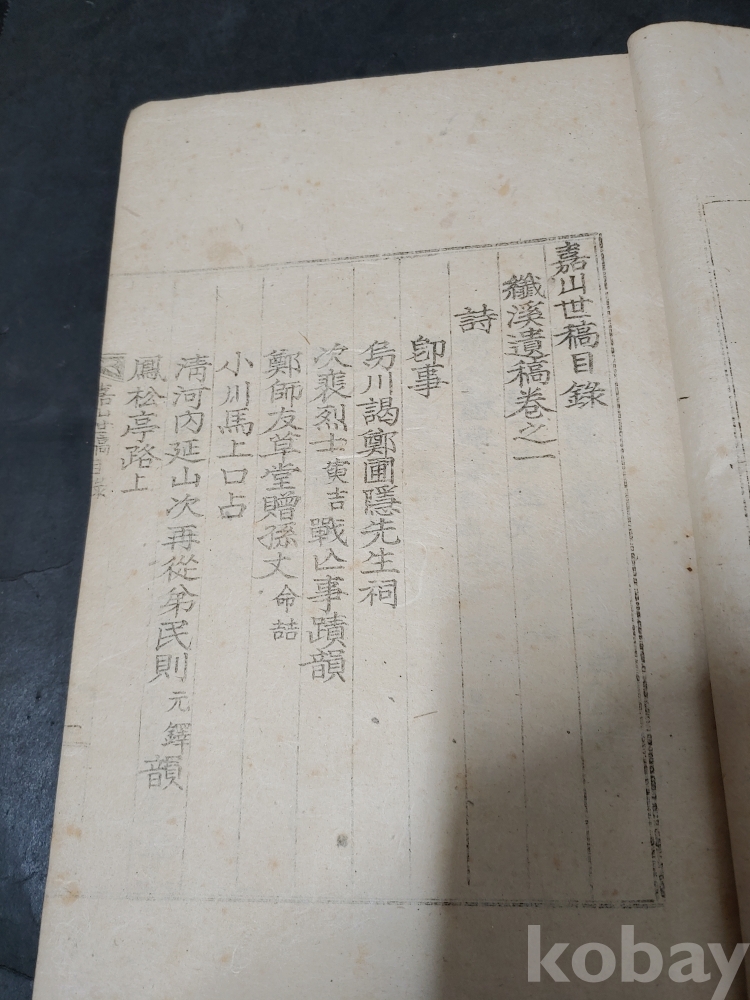 嘉山世稿目錄
孅溪遺稿卷之一
詩
卽事
烏川謁鄭圃隱先生祠
次裴烈士寅吉戰亾事蹟韻
鄭師友草堂贈孫丈命喆
小川馬上口占
淸河內延山次再從弟民則元鐸韻
鳳松亭路上
嘉山世稿目錄
kobay